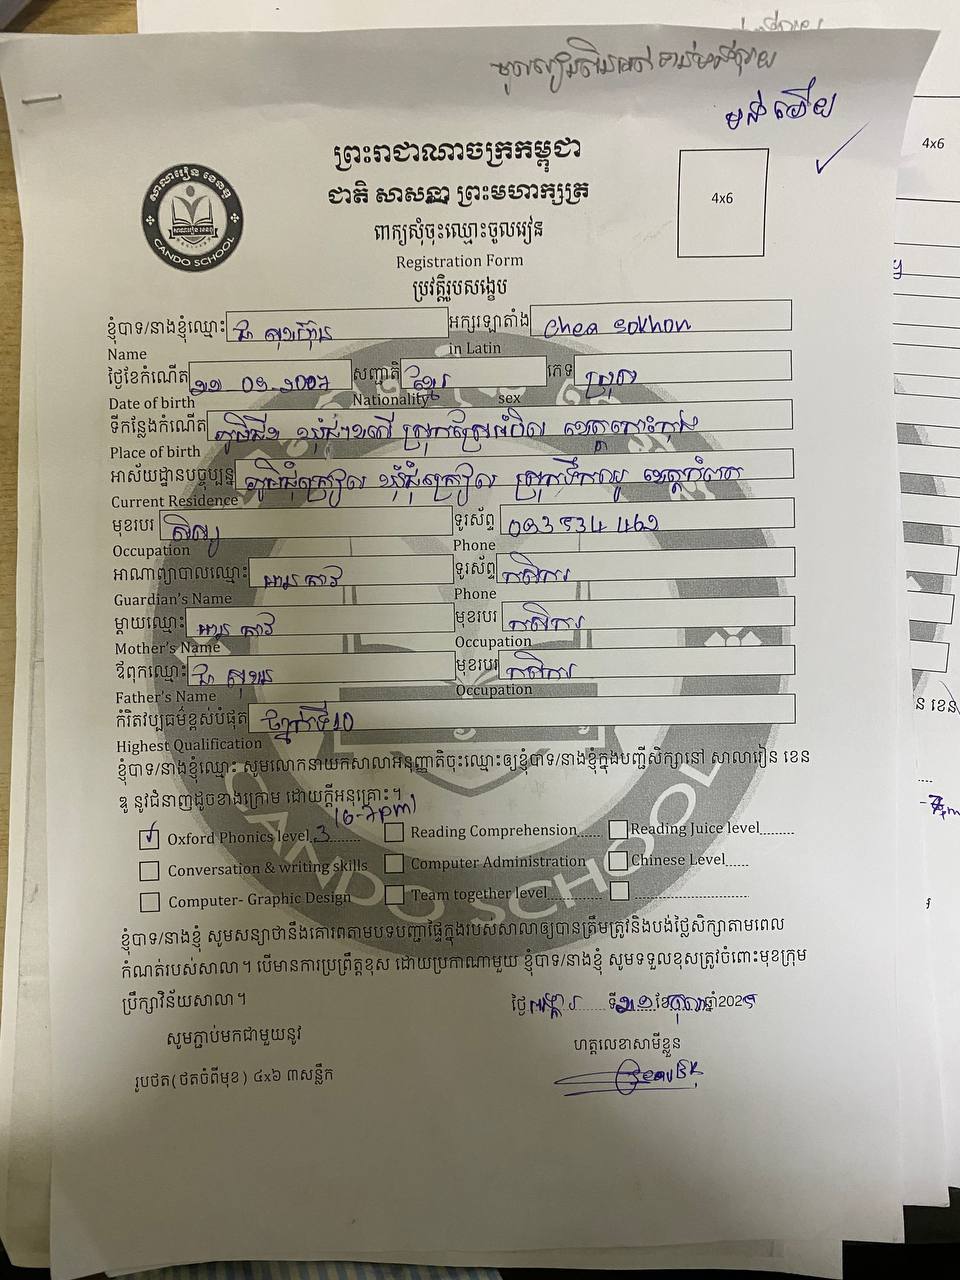 មន់ ឃើយ
ព្រះរាជាណាចក្រកម្ពុជា
4x6
ជាតិ សាសនា ព្រះមហាក្សត្រ
4x6
សាលារៀន ខេនឌូ
CANDO SCHOOL
ពាក្យសុំចុះឈ្មោះចូលរៀន
Registration Form
ប្រវត្តិរូបសង្ខេប
ខ្ញុំបាទ/នាងខ្ញុំឈ្មោះ ជា សុខហ៊ុន អក្សរឡាតាំង Chea Sokhon
Name in Latin
ថ្ងៃខែកំណើត សញ្ជាតិ ខ្មែរ ភេទ ប្រុស
Date of birth Nationality sex
ទីកន្លែងកំណើត ស្រុកស្រែអំបិល ខេត្តកោះកុង
Place of birth
អាស័យដ្ឋានបច្ចុប្បន្ន ភូមិជុំគ្រៀល ឃុំជុំគ្រៀល ស្រុកទឹកឈូ ខេត្តកំពត
Current Residence
មុខរបរ សិស្ស ទូរស័ព្ទ 093 534 462
Occupation Phone
អាណាព្យាបាលឈ្មោះ ទូរស័ព្ទ កសិករ
Guardian's Name Phone
ម្តាយឈ្មោះ មុខរបរ កសិករ
Mother's Name Occupation
ឪពុកឈ្មោះ ជា មុខរបរ កសិករ
Father's Name Occupation
កំរិតវប្បធម៌ខ្ពស់បំផុត ថ្នាក់ទី10
Highest Qualification
ខ្ញុំបាទ/នាងខ្ញុំឈ្មោះ សូមលោកនាយកសាលាអនុញ្ញាតិចុះឈ្មោះឲ្យខ្ញុំបាទ/នាងខ្ញុំក្នុងបញ្ជីសិក្សានៅ សាលារៀន ខេន
ឌូ នូវជំនាញដូចខាងក្រោម ដោយក្តីអនុគ្រោះ។
(6-7pm)
Oxford Phonics level 3 Reading Comprehension...... Reading Juice level.........
Conversation & writing skills Computer Administration Chinese Level......
Computer- Graphic Design Team together level..............
ខ្ញុំបាទ/នាងខ្ញុំ សូមសន្យាថានឹងគោរពតាមបទបញ្ជាផ្ទៃក្នុងរបស់សាលាឲ្យបានត្រឹមត្រូវនិងបង់ថ្លៃសិក្សាតាមពេល
កំណត់របស់សាលា។ បើមានការប្រព្រឹត្តខុស ដោយប្រកាណាមួយ ខ្ញុំបាទ/នាងខ្ញុំ សូមទទួលខុសត្រូវចំពោះមុខក្រុម
ប្រឹក្សាវិន័យសាលា។
ថ្ងៃ អង្គារ ទី ខែ តុលា ឆ្នាំ202
សូមភ្ជាប់មកជាមួយនូវ
ហត្ថលេខាសាមីខ្លួន
រូបថត(ថតចំពីមុខ) ៤x៦ ៣សន្លឹក
CANDO SCHOOL